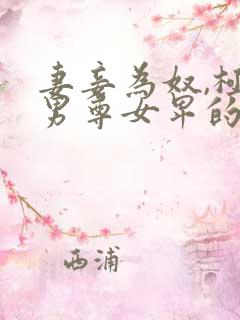 妻妾为奴,
男尊女卑的
西浦